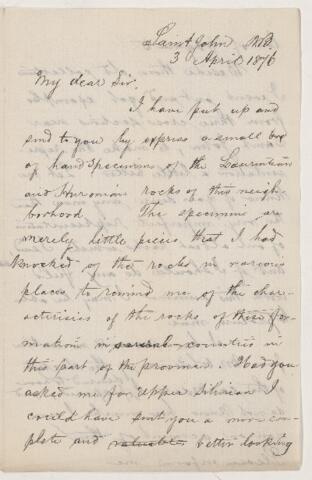 Saint John NB.
3 April 1876
My dear Sir.
I have put up and
send to you by express a small box
of hand specimens of the Laurentian
and Huronian rocks of this neigh
borhood The specimens are
merely little pieces that I had
knocked of the rocks in various
places to remind me of the char-
acteristics of the rocks of these for
mations in several counties in
this part of the province. Had you
asked me for Upper Silurian I
could have sent you a more com
plete and valuable better looking